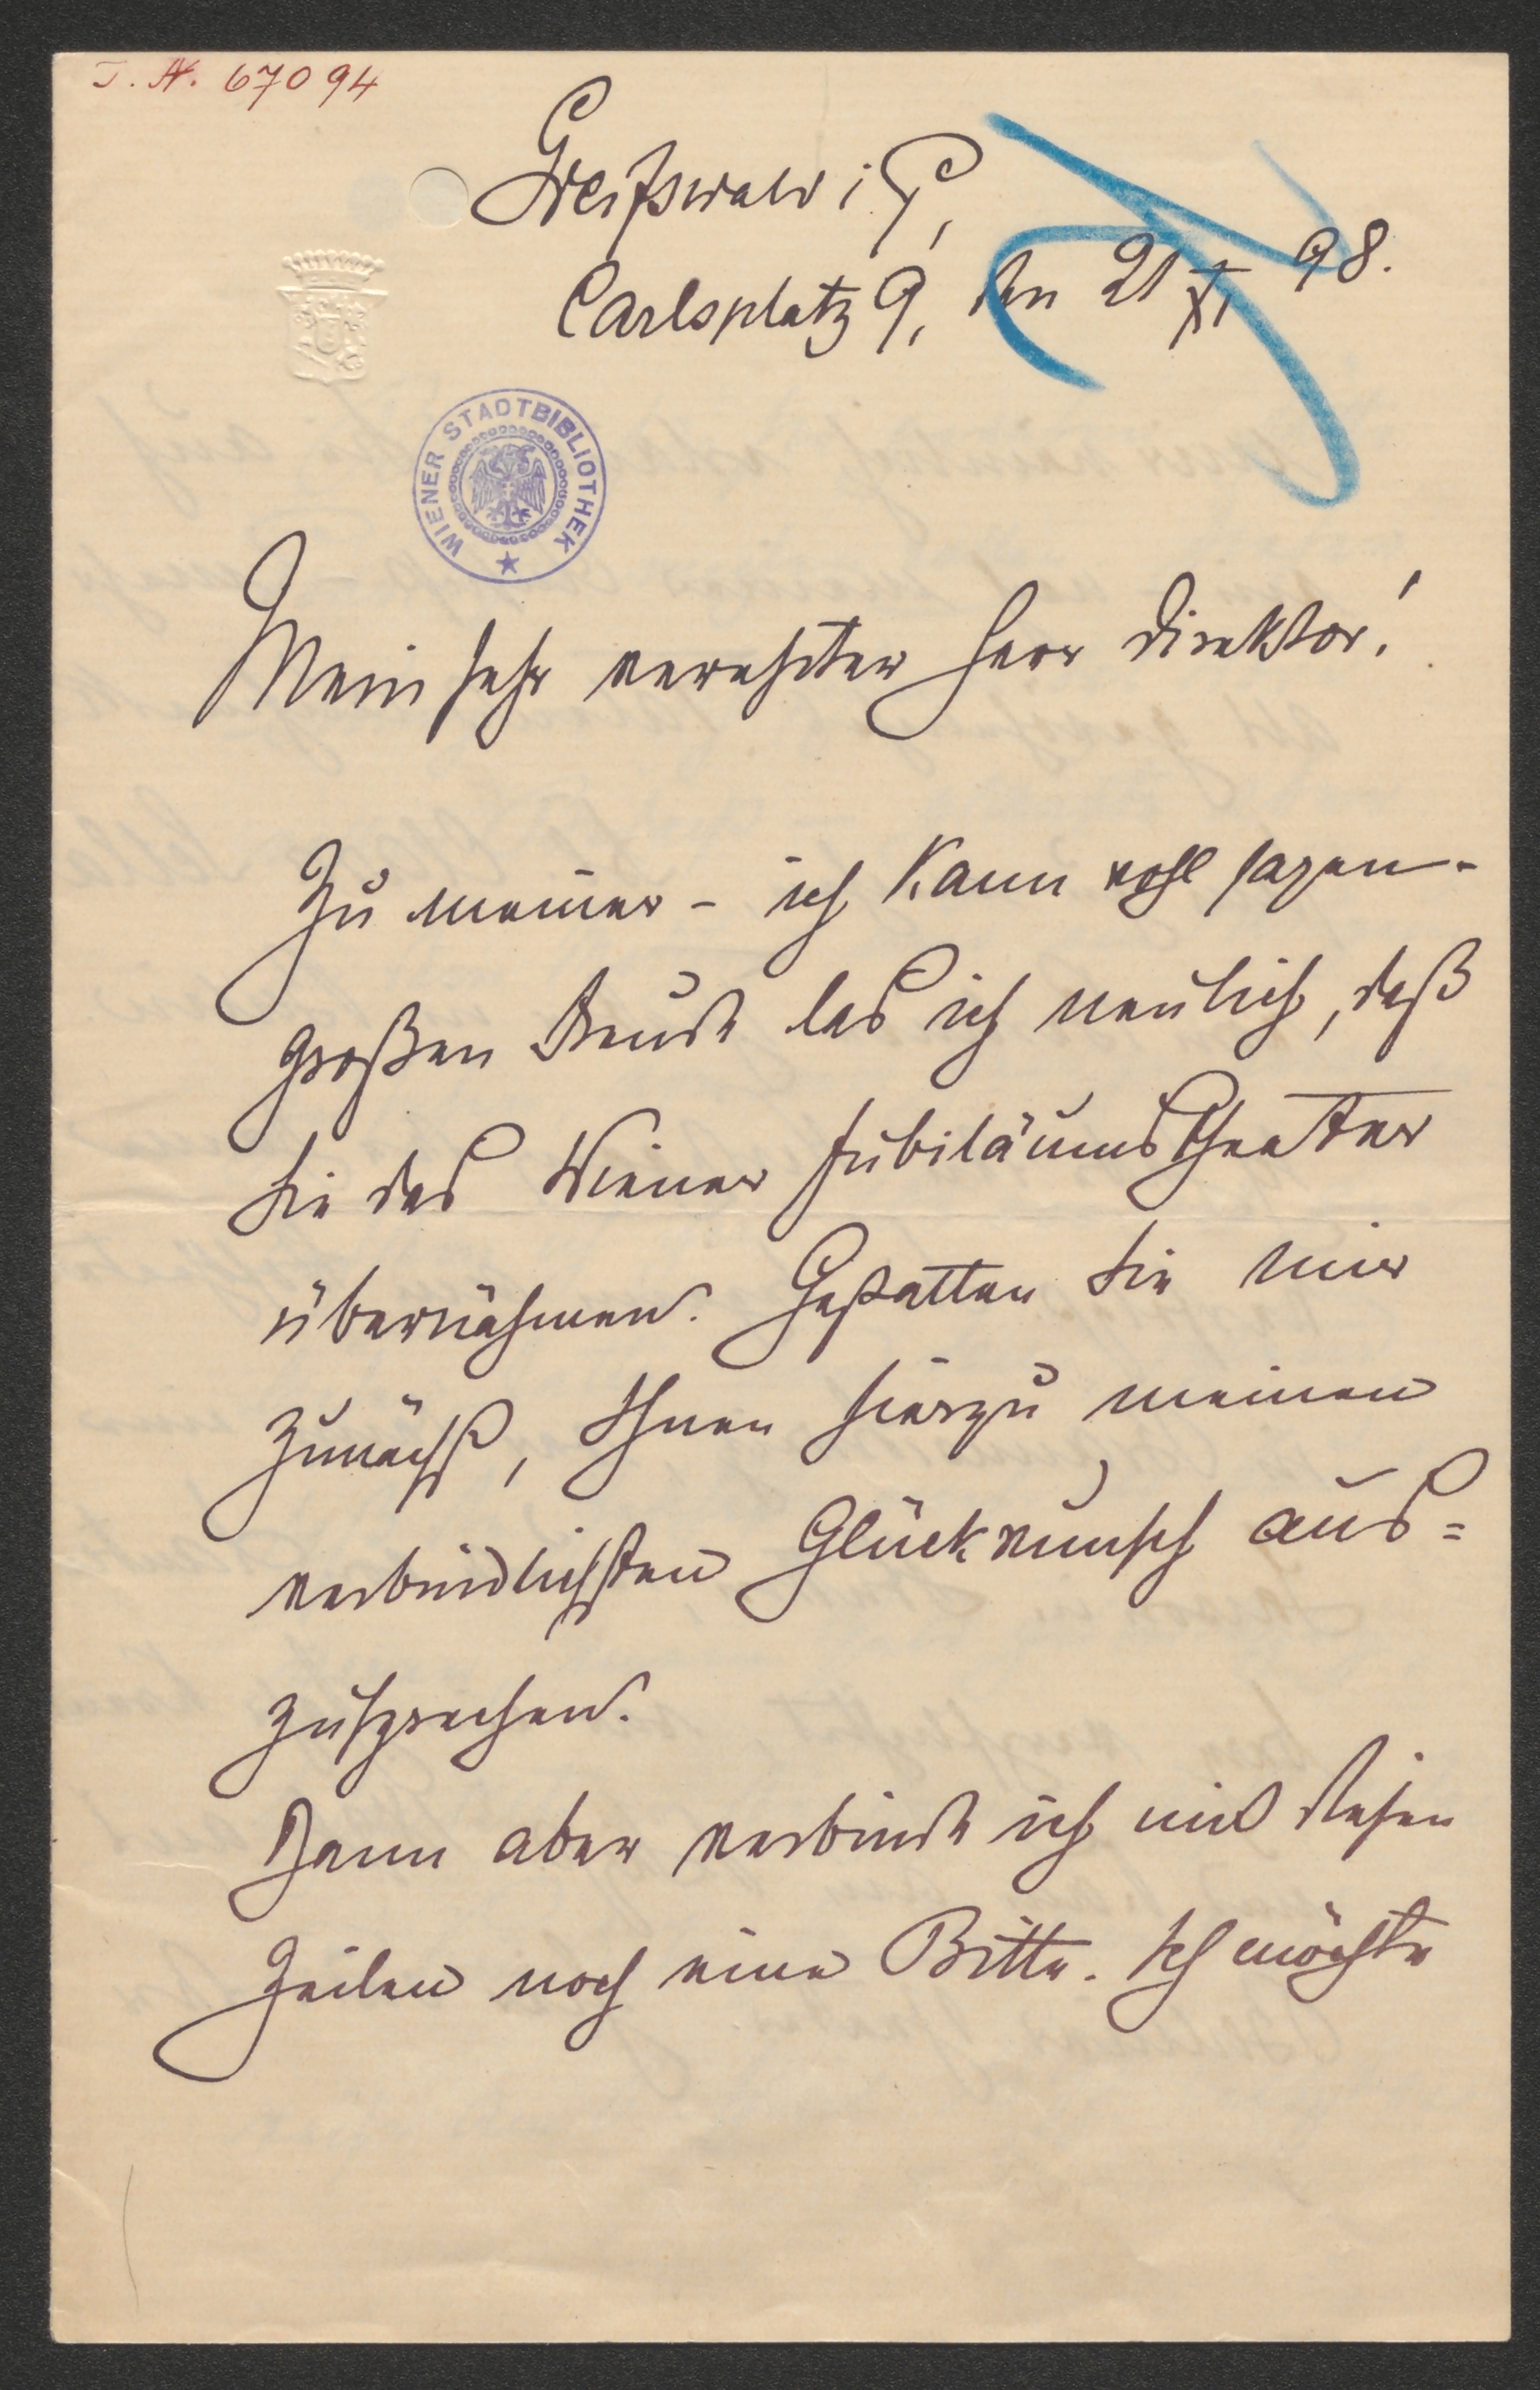 J. N. 67094
Greifswald i. P,
Carlsplatz 9, den 21 XI 98.
WIENER STADTBIBLIOTHEK
Mein sehr verehrter Herr Direktor!
Zu meiner – ich kann wohl sagen –
großen Freude las ich neulich, daß
Sie das Wiener Jubiläumstheater
übernähmen. Gestatten Sie mir
zunächst, Ihnen hierzu meinen
verbindlichsten Glückwunsch aus=
zusprechen.
Dann aber verbinde ich mit diesen
Zeilen noch eine Bitte. Ich möchte